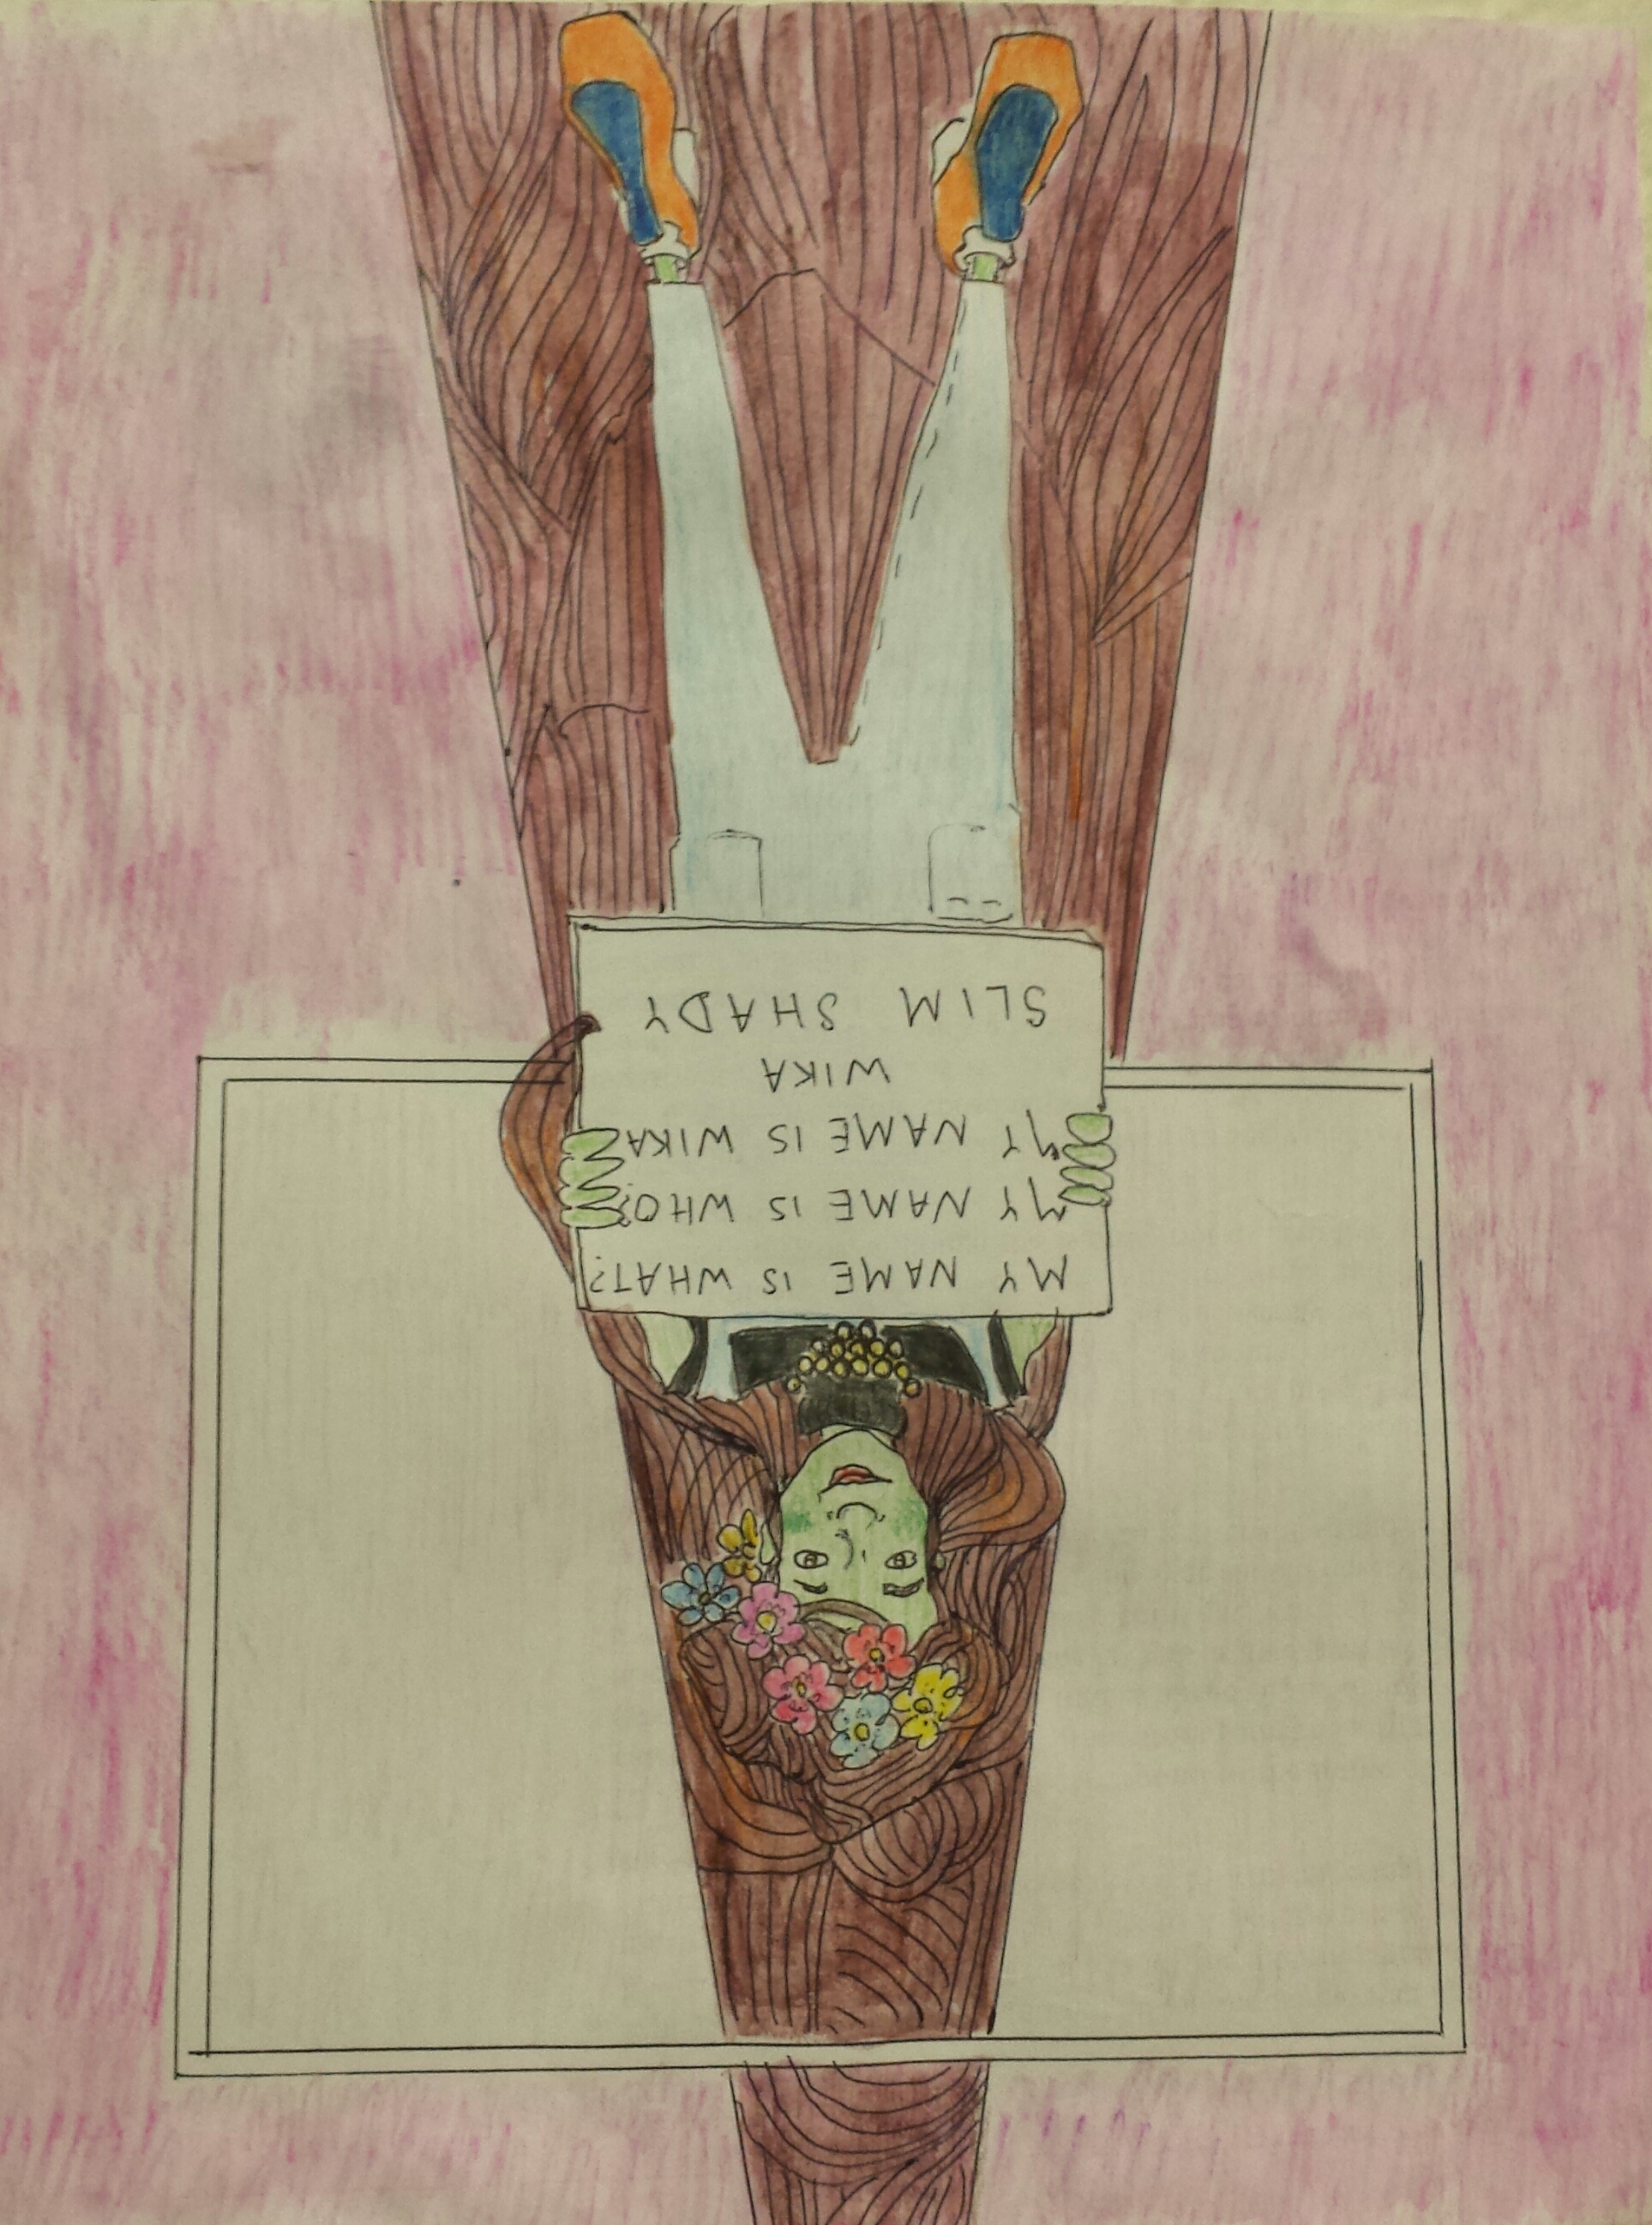 MY NAME IS WHAT?
MY NAME IS WHO?
MY NAME IS WIKA
WIKA
SLIM SHADY